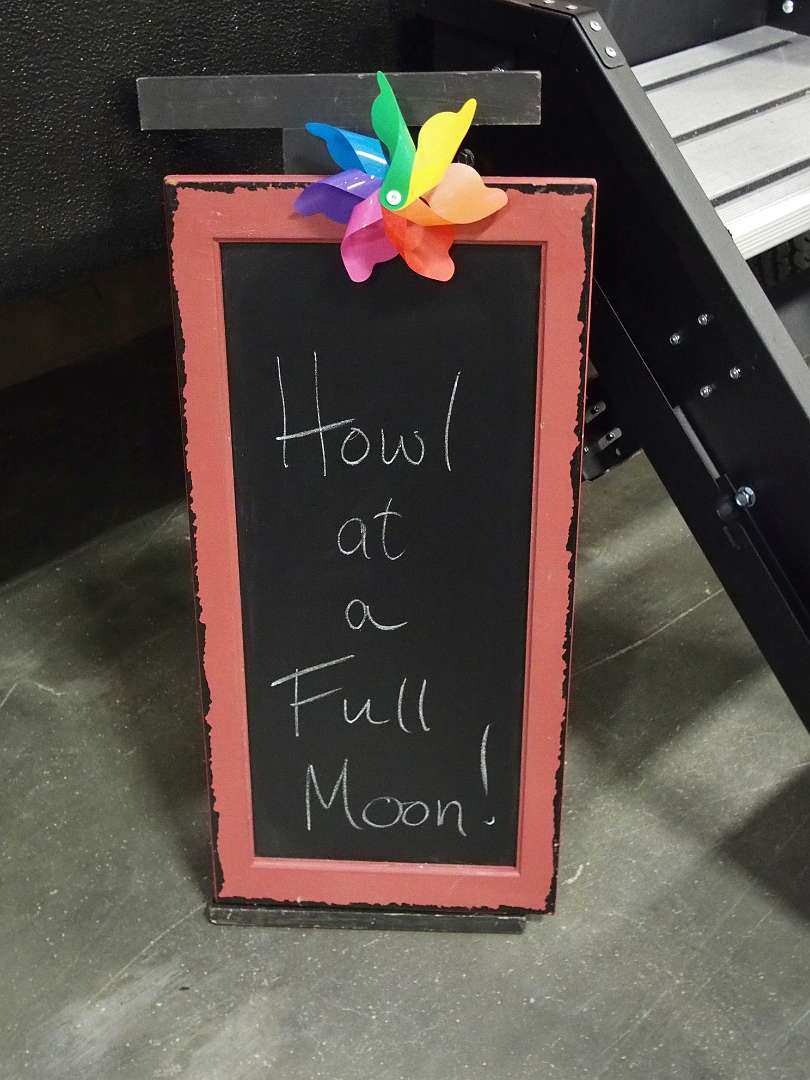 Howl
at
a
Full
Moon!